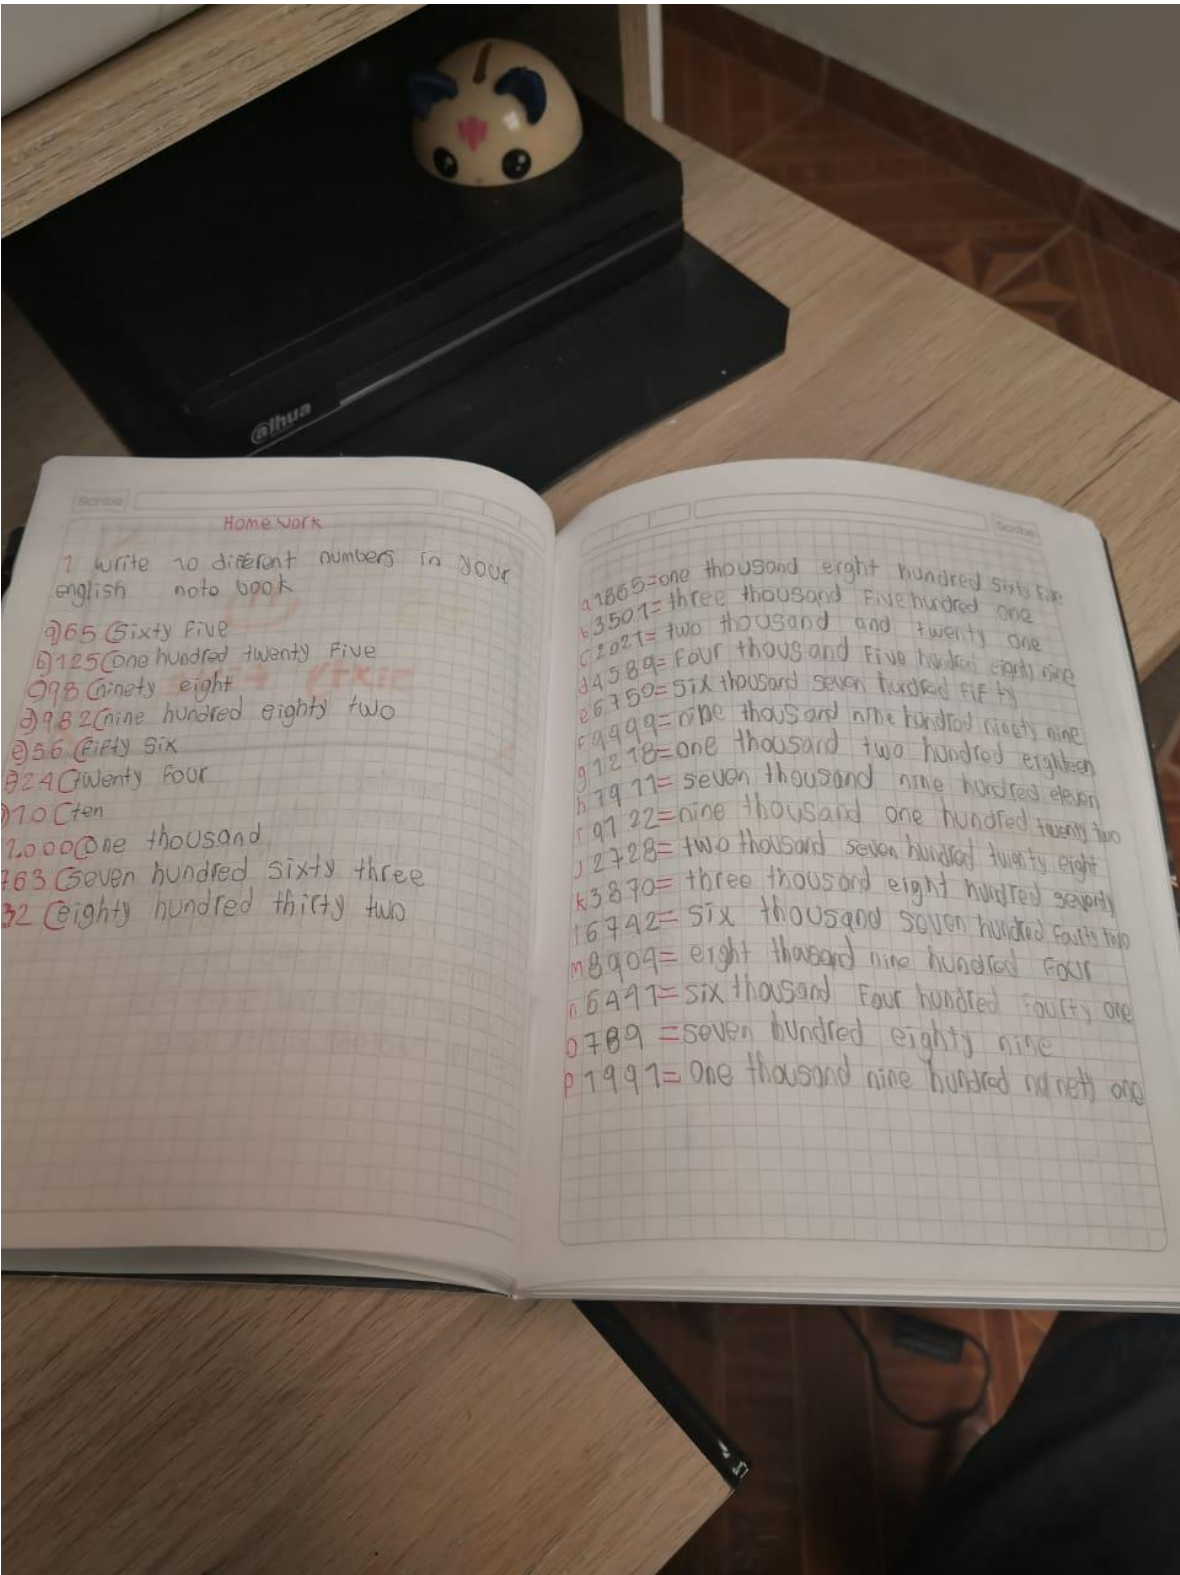 alhua
Scribe
Home Work
1 write 10 diferent numbers in your
english noto book
a)65 (Sixty Five
b)125(one hundred twenty Five
c)98 (ninety eight
d)982(nine hundred eighty two
e)56 (Fifty Six
24(Twenty Four
)10 (ten
1.000(One thousand
763 (Seven hundred sixty three
32 (eighty hundred thirty two
Scribe
a 1865=one thousand eight hundred sixty five
b 3501= three thousand Five hundred one
c 2021= two thousand and twenty one
d 4589= Four thousand Five hundred eighty nine
e 6750= six thousand seven hundred Fifty
F 9999= nine thousand nine hundred ninety nine
g 1218=one thousand two hundred eighteen
h 7911= seven thousand nine hundred eleven
i 9122=nine thousand one hundred twenty two
J 2728= two thousand seven hundred twenty eight
k 3870= three thousand eight hundred seventy
l 6742= six thousand seven hundred fourty two
m 8904= eight thousand nine hundred Four
n 6441= six thousand Four hundred Fourty one
o 789 = seven hundred eighty nine
p 1991= One thousand nine hundred one